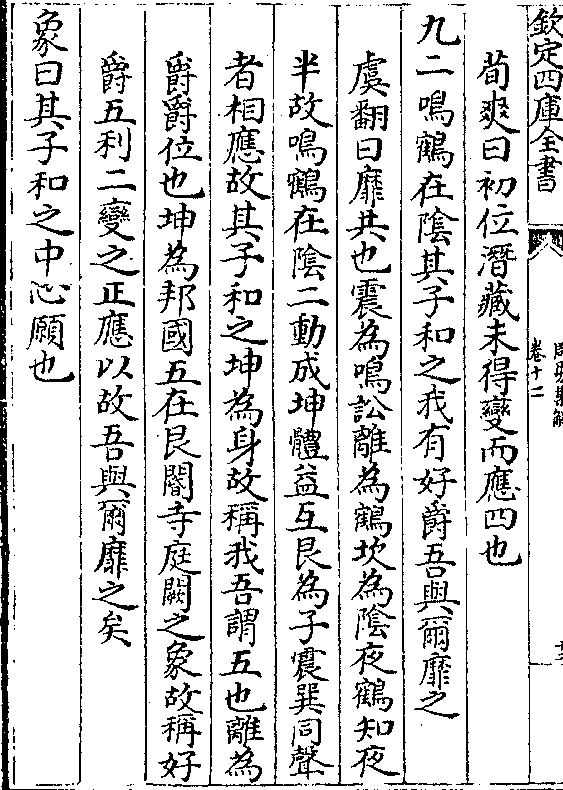 欽定四庫全書
卷十二
荀爽曰初位潛藏未得變而應四也
九二鳴鶴在陰其子和之我有好爵吾與爾靡之
虞翻曰靡共也震為鳴訟離為鶴坎為陰夜鶴知夜
半故鳴鶴在陰二動成坤體益互艮為子震巽同聲
者相應故其子和之坤為身故稱我吾謂五也離為
爵爵位也坤為邦國五在艮閽寺庭闕之象故稱好
爵五利二變之正應以故吾與爾靡之矣
象曰其子和之中心願也